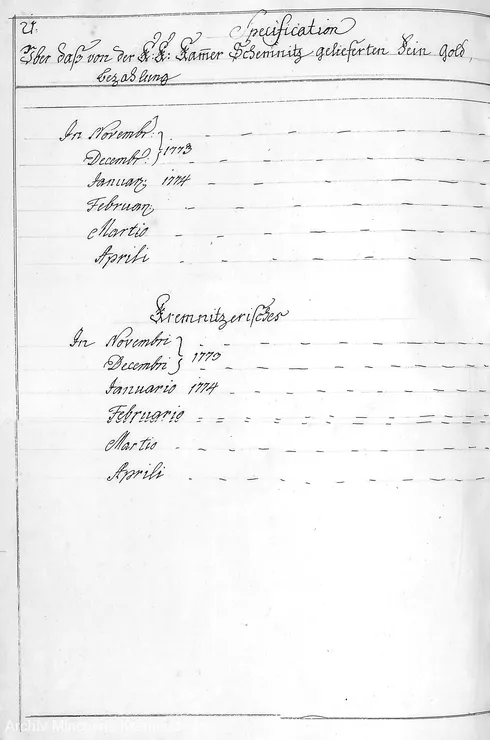 U.
Specification
Über daß von der K: K: Kam̄er Schemnitz gelieferten Fein gold,
bezahlung
In Novembr:
Decembr: } 1773
Januar: 1774
Februar:
Martio
Aprili
Kremnitzerisches
In Novembri
Decembri } 1773
Januario 1774
Februario
Martio
Aprili
Archiv Mincovne Kremnica